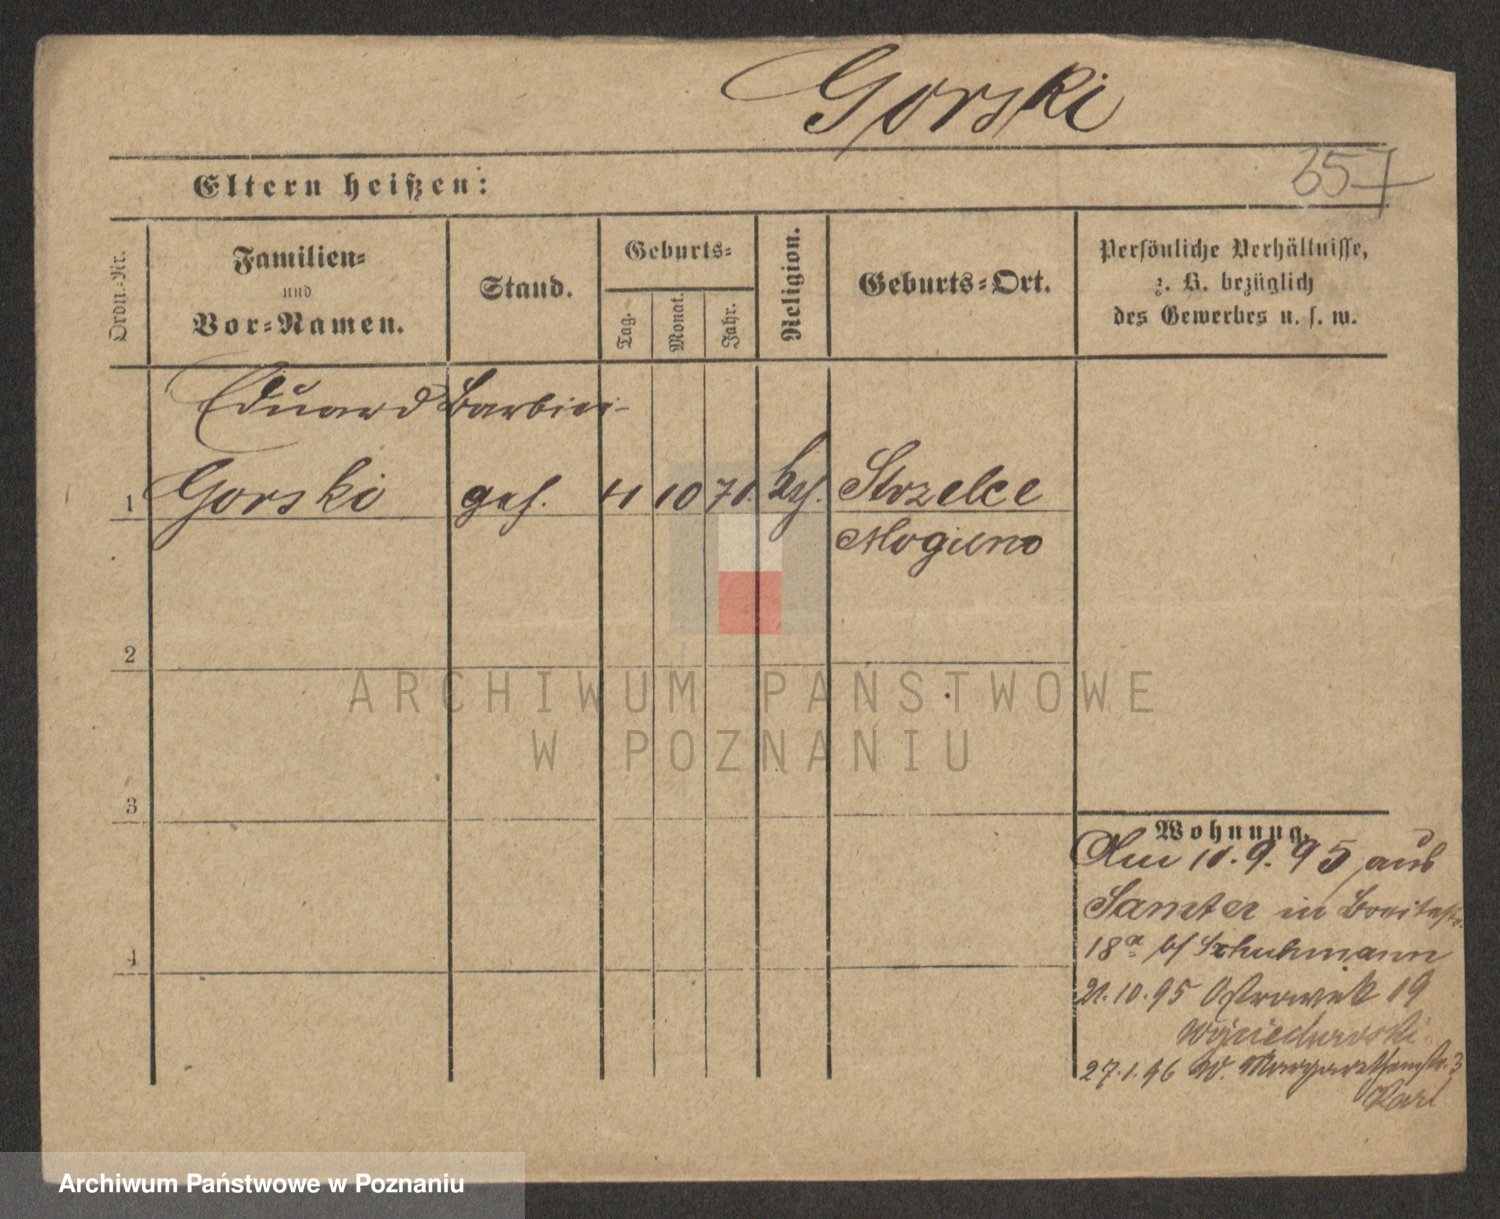 Gorski
357
Eltern heißen:
Ordn.-Nr.
Familien=
und
Vor=Namen.
Stand.
Geburts=
Tag.
Monat.
Jahr.
Religion.
Geburts=Ort.
Persönliche Verhältnisse,
z. B. bezüglich
des Gewerbes u. s. w.
Eduard Barbier
1 Gorski 10 71 Strzelce
Mogilno
2
3
4
ARCHIWUM PAŃSTWOWE
W POZNANIU
Wohnung.
Am 10.9.95 aus
Samter in
18a b/ Schuhmann
21.10.95 Ostrowek 19
Wojciechowski
27.1.96 W. Margarethenstr. 3
Karl
Archiwum Państwowe w Poznaniu